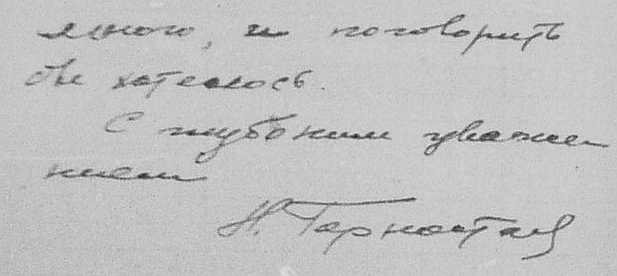 много, и поговорить
бы хотелось.
С глубоким уваже
нием
Н. Горностаев